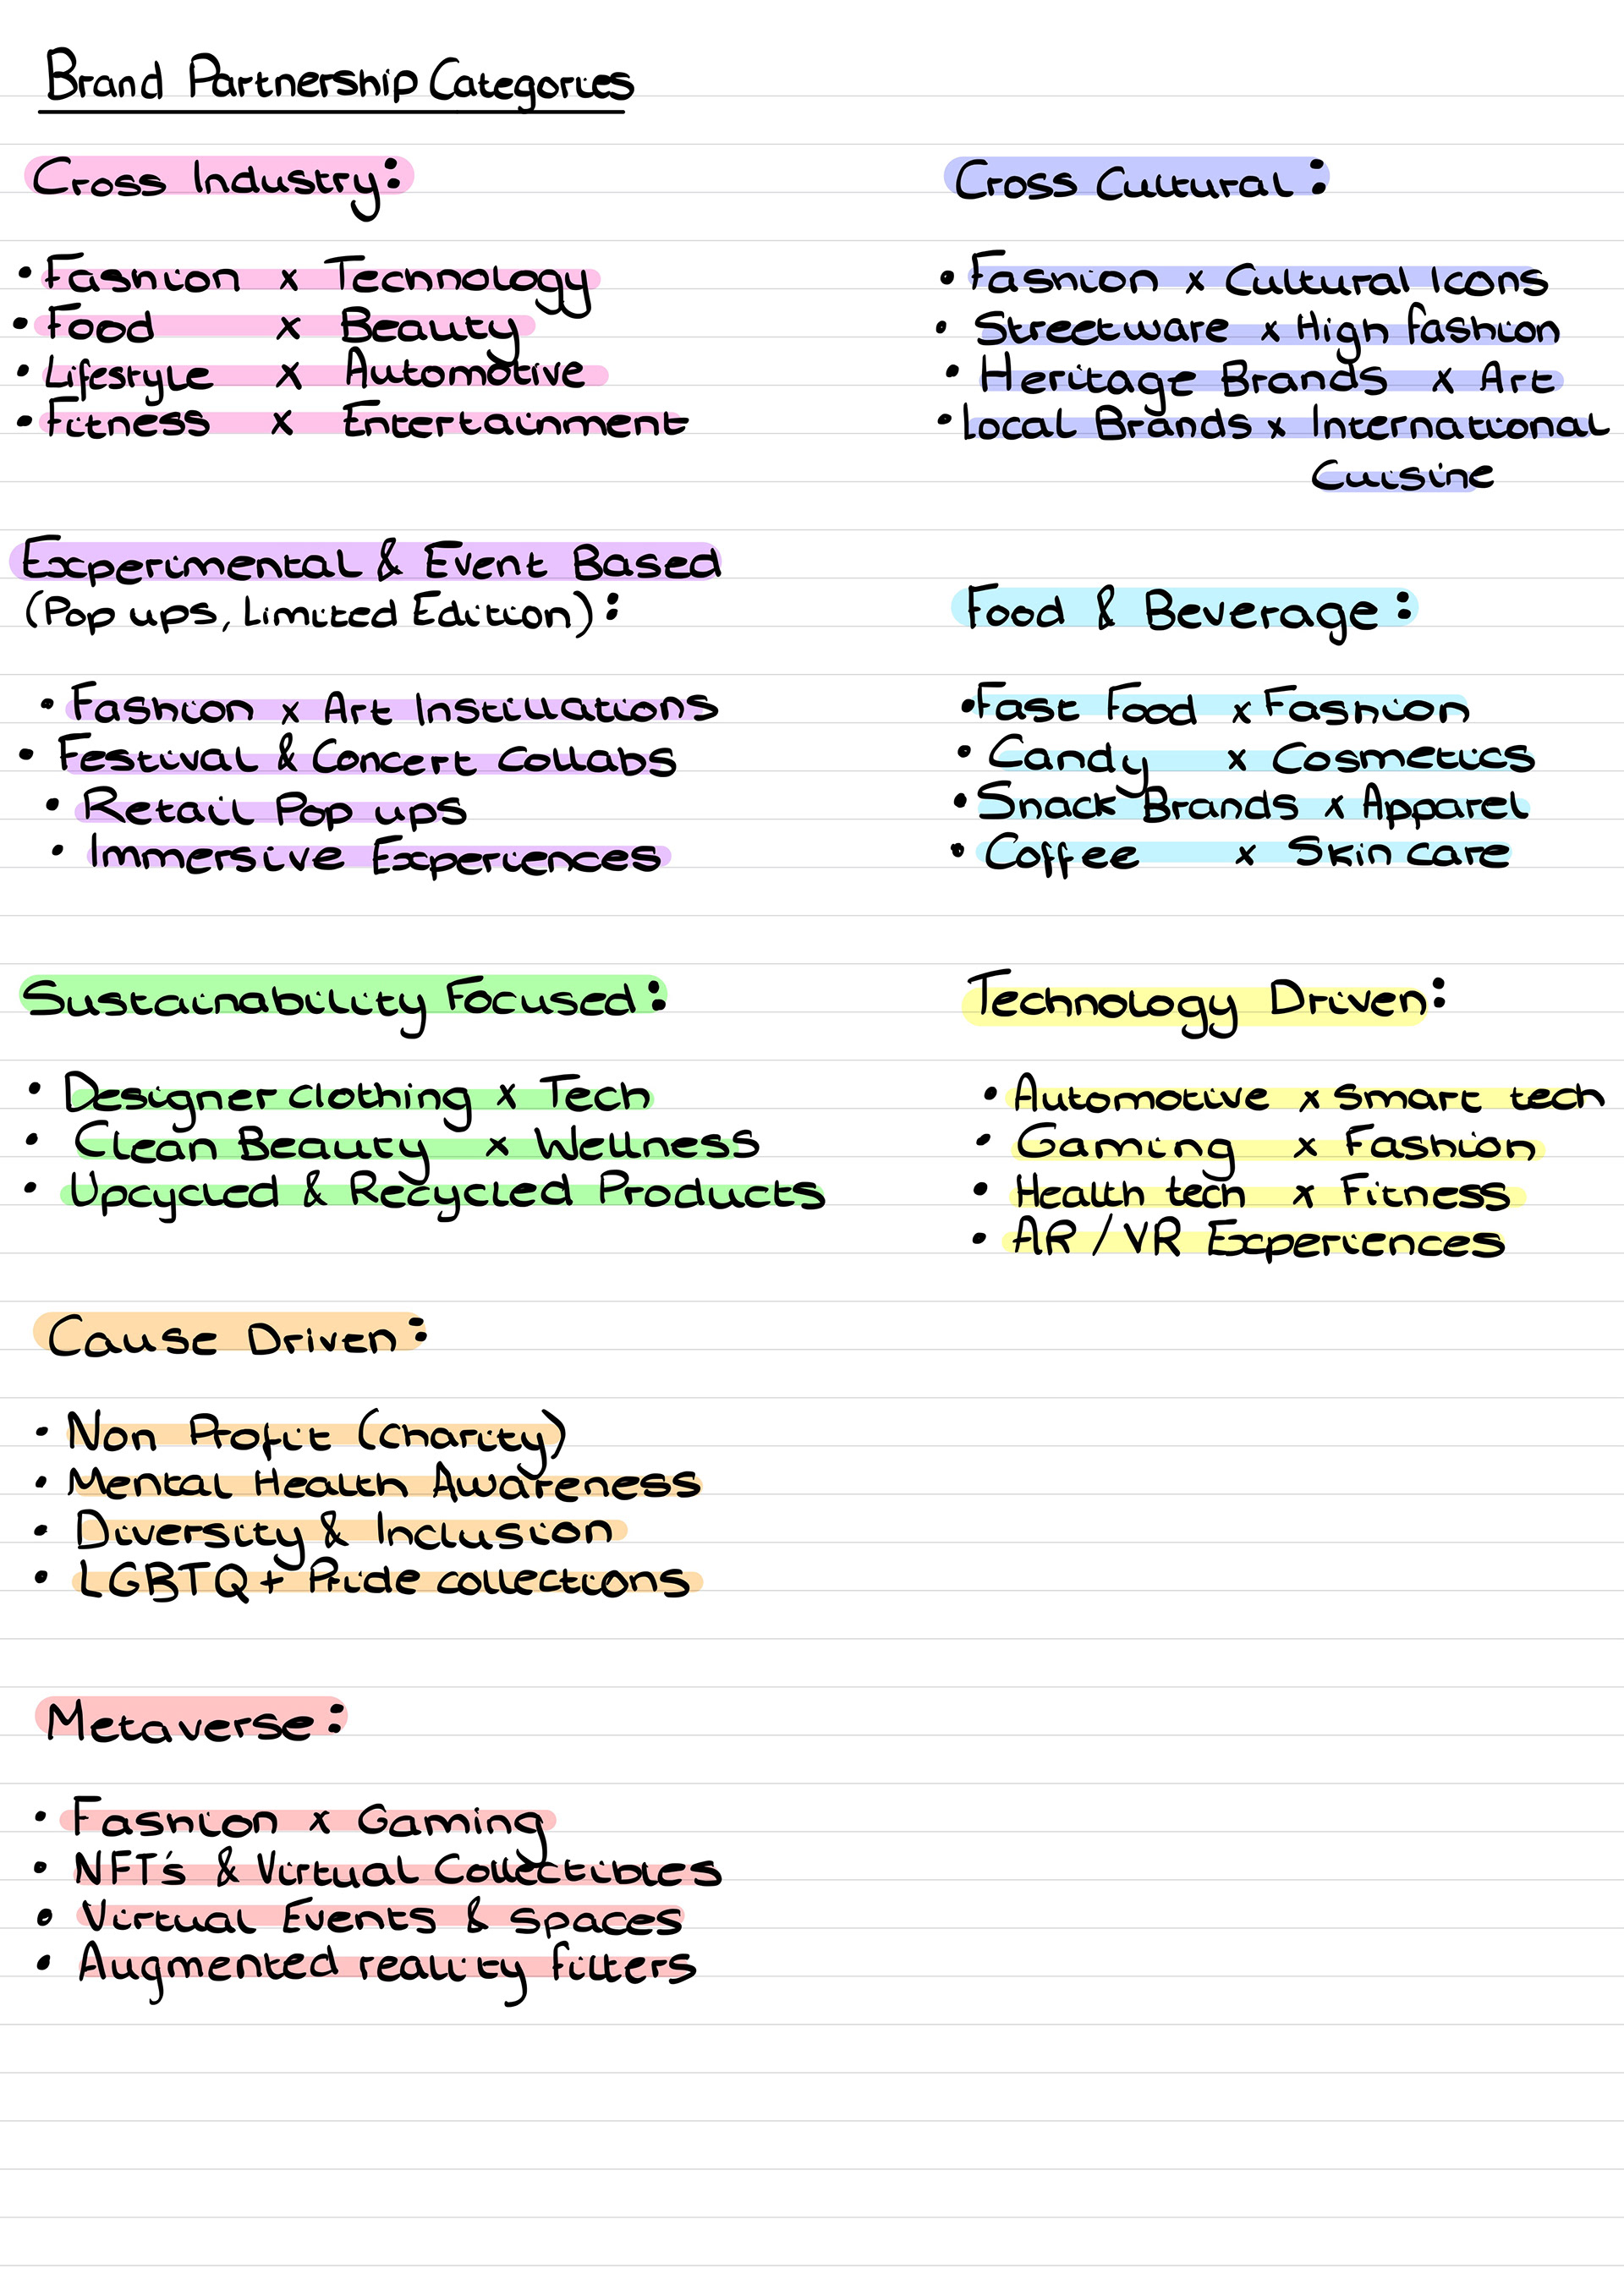 Brand Partnership Categories
Cross Industry:
• Fashion x Technology
• Food x Beauty
• Lifestyle x Automotive
• Fitness x Entertainment
Cross Cultural:
• Fashion x Cultural Icons
• Streetware x High fashion
• Heritage Brands x Art
• Local Brands x International
Cuisine
Experimental & Event Based
(Pop ups, Limited Edition):
• Fashion x Art Instillations
• Festival & Concert Collabs
• Retail Pop ups
• Immersive Experiences
Food & Beverage:
• Fast Food x Fashion
• Candy x Cosmetics
• Snack Brands x Apparel
• Coffee x Skin care
Sustainability Focused:
• Designer clothing x Tech
• Clean Beauty x Wellness
• Upcycled & Recycled Products
Technology Driven:
• Automotive x Smart tech
• Gaming x Fashion
• Health tech x Fitness
• AR/VR Experiences
Cause Driven:
• Non Profit (Charity)
• Mental Health Awareness
• Diversity & Inclusion
• LGBTQ+ Pride collections
Metaverse:
• Fashion x Gaming
• NFT's & Virtual Collectibles
• Virtual Events & Spaces
• Augmented reality filters